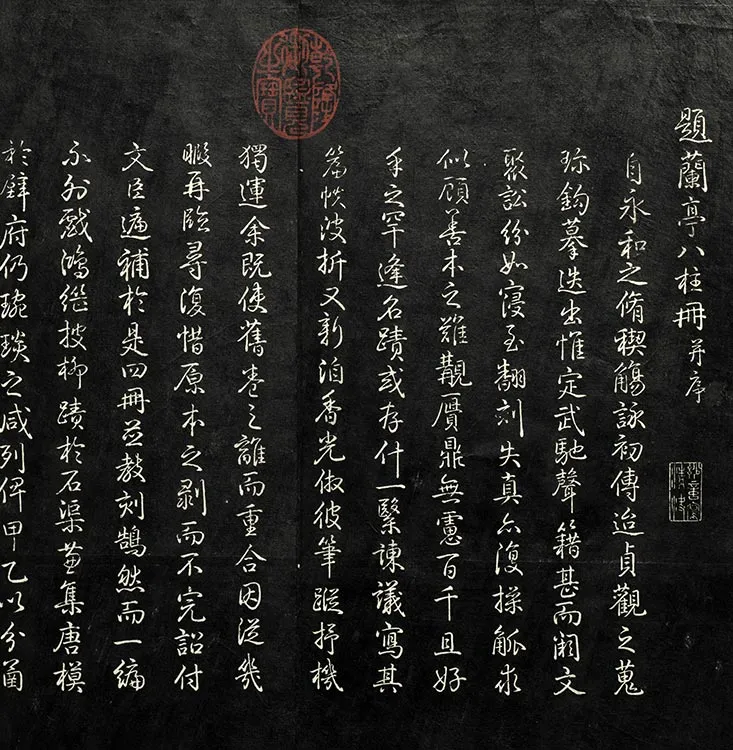 題蘭亭八柱冊并序
自永和之脩禊觴詠初傳迨貞觀之蒐
珍鉤摹迭出惟定武馳聲籍甚而闕文
聚訟紛如寖至翻刻失真亦復操觚求
似顧善本之難覯贗鼎無慮百千且好
手之罕逢名蹟或存什一繄諫議寫其
篇帙波折又新洎香光倣彼筆蹤抒機
獨運余既使舊卷之離而重合因從幾
暇再臨尋復惜原本之剥而不完詔付
文臣補於是四冊並教刻鵠然而一編
不外戲鴻繼披柳蹟於石渠兼集唐模
於壁府仍琬琰之咸列俾甲乙以分函
乾隆御覽之寶